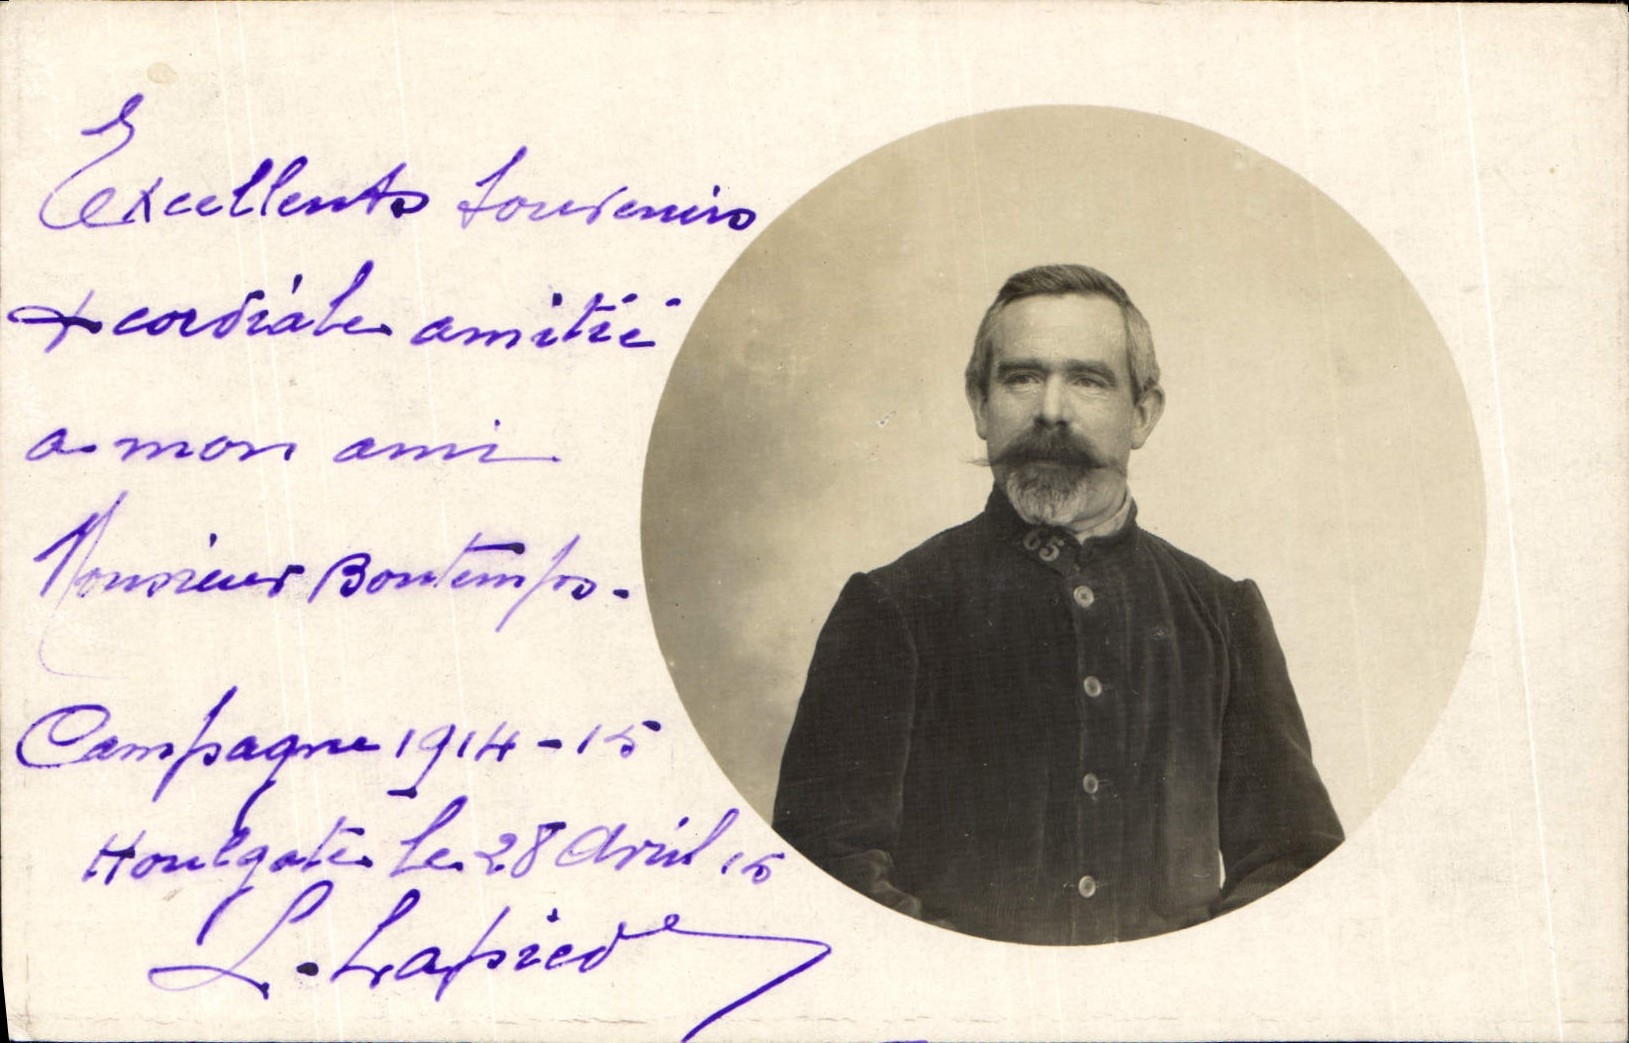 Excellents souvenirs
& cordiale amitié
a mon ami
Monsieur Bontemps.
Campagne 1914-15
Houlgate le 28 Avril 15
L. Lapied
65